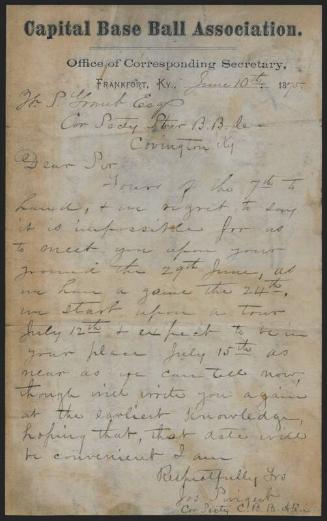 Capital Base Ball Association.
Office of Corresponding Secretary,
Frankfort, Ky., June 10th. 1875.
Esq
Cor Secty Star B.B.
Covington Ky
Dear Sir
Yours of the 7th to
hand, & we regret to say
it is impossible for us
to meet you upon your
ground the 29th June, as
we have a game the 24th,
we start upon a tour
July 12th & expect to be in
your place July 15th as
near as we can tell now,
though will write you again
at the earliest knowledge,
hoping that, that date will
be convenient I am
Respectfully, Yrs
Jos
Cor Secty C. B. B.